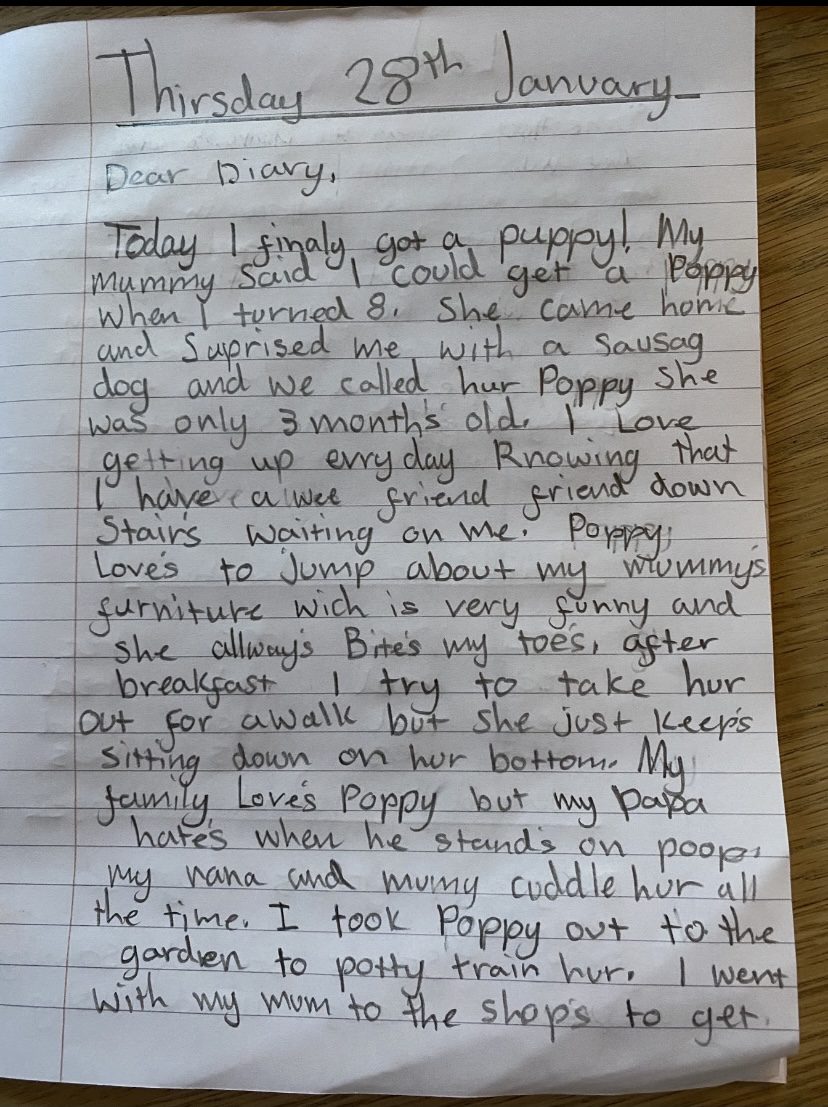 Thirsday 28th January
Dear Diary,
Today I finaly got a puppy! My
mummy said I could get a Poppy
when I turned 8. She came home
and Suprised me with a sausag
dog and we called hur Poppy she
was only 3 month's old. I Love
getting up evry day Knowing that
I have a wee friend friend down
Stair's waiting on me. Poppy
Love's to jump about my mummy's
furniture wich is very funny and
she allway's Bite's my toe's, after
breakfast I try to take hur
out for a walk but she just keep's
sitting down on hur bottom. My
family Love's Poppy but my papa
hate's when he stand's on poop.
my nana and mumy cuddle hur all
the time. I took Poppy out to the
garden to potty train hur. I went
with my mum to the shop's to get.